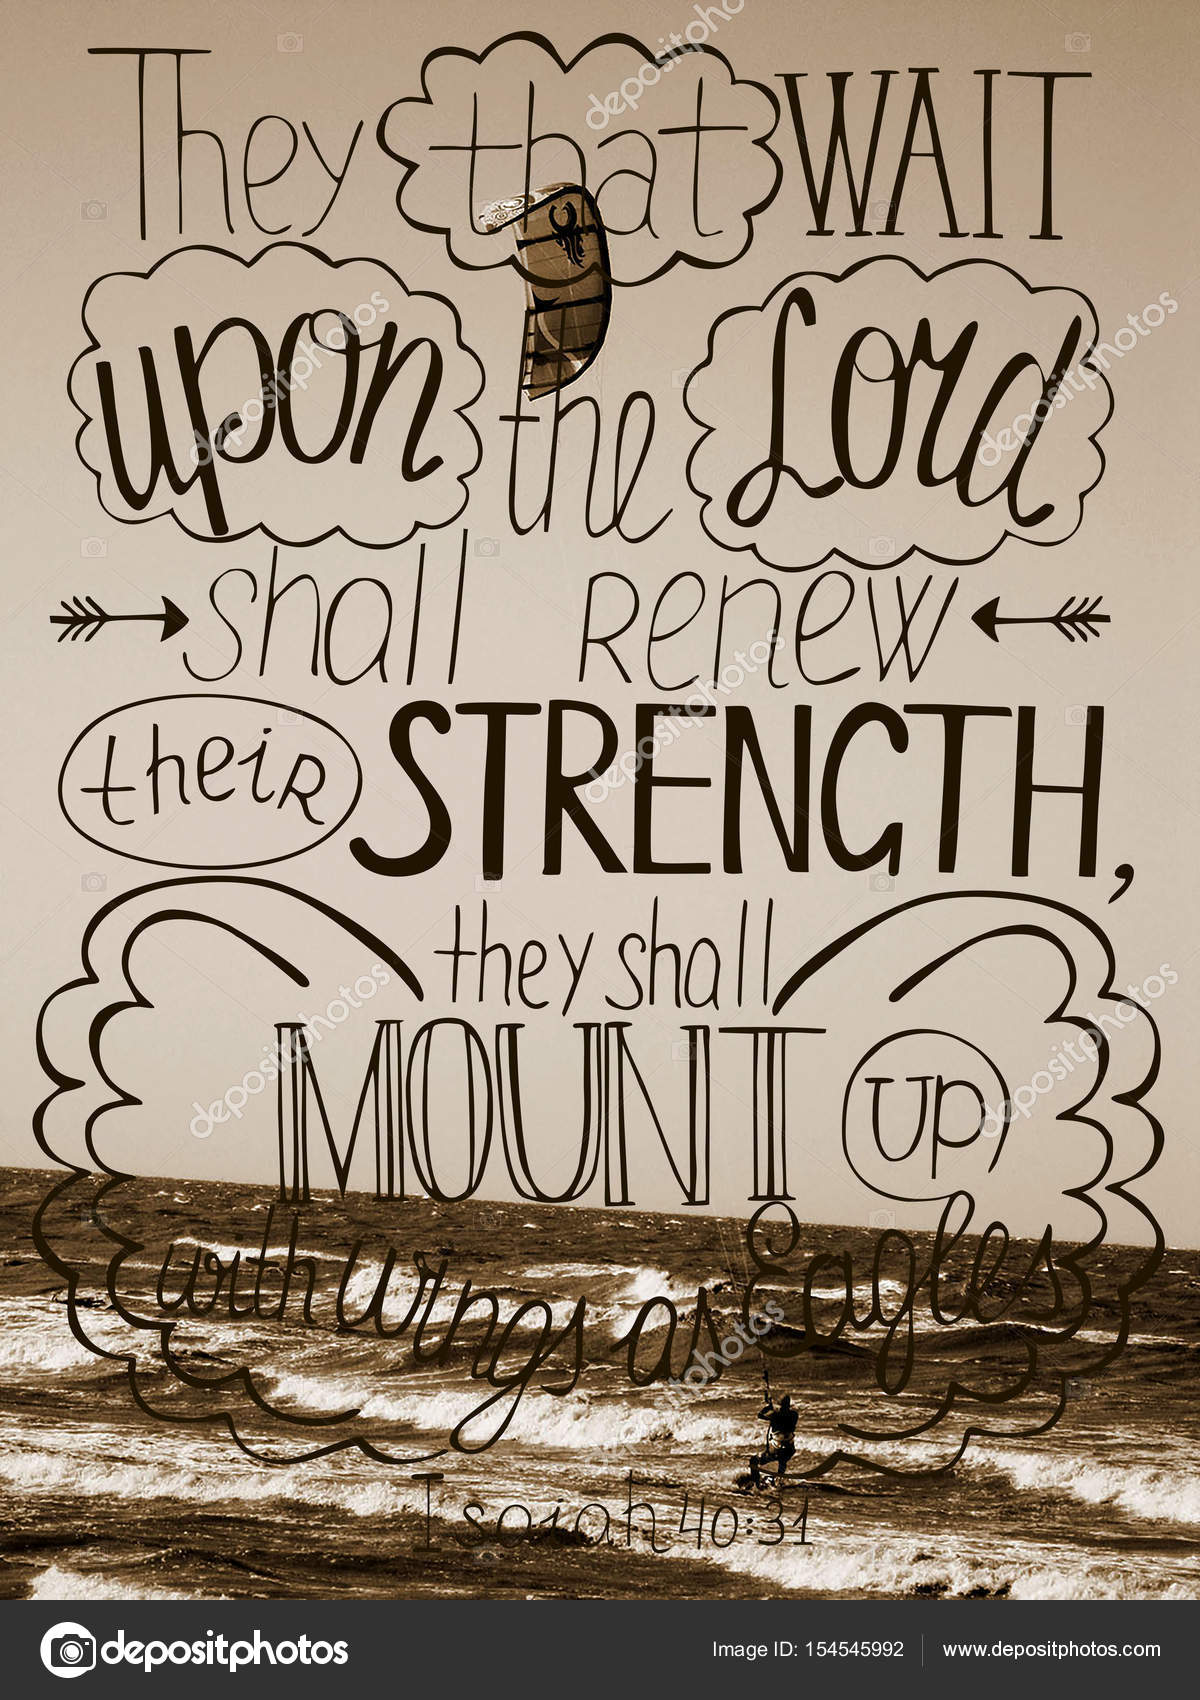 They that WAIT
upon the Lord
shall Renew
theiR STRENGTH,
they shall
MOUNT UP
with wings as Eagles
Isaiah 40:31
depositphotos
Image ID: 154545992 www.depositphotos.com